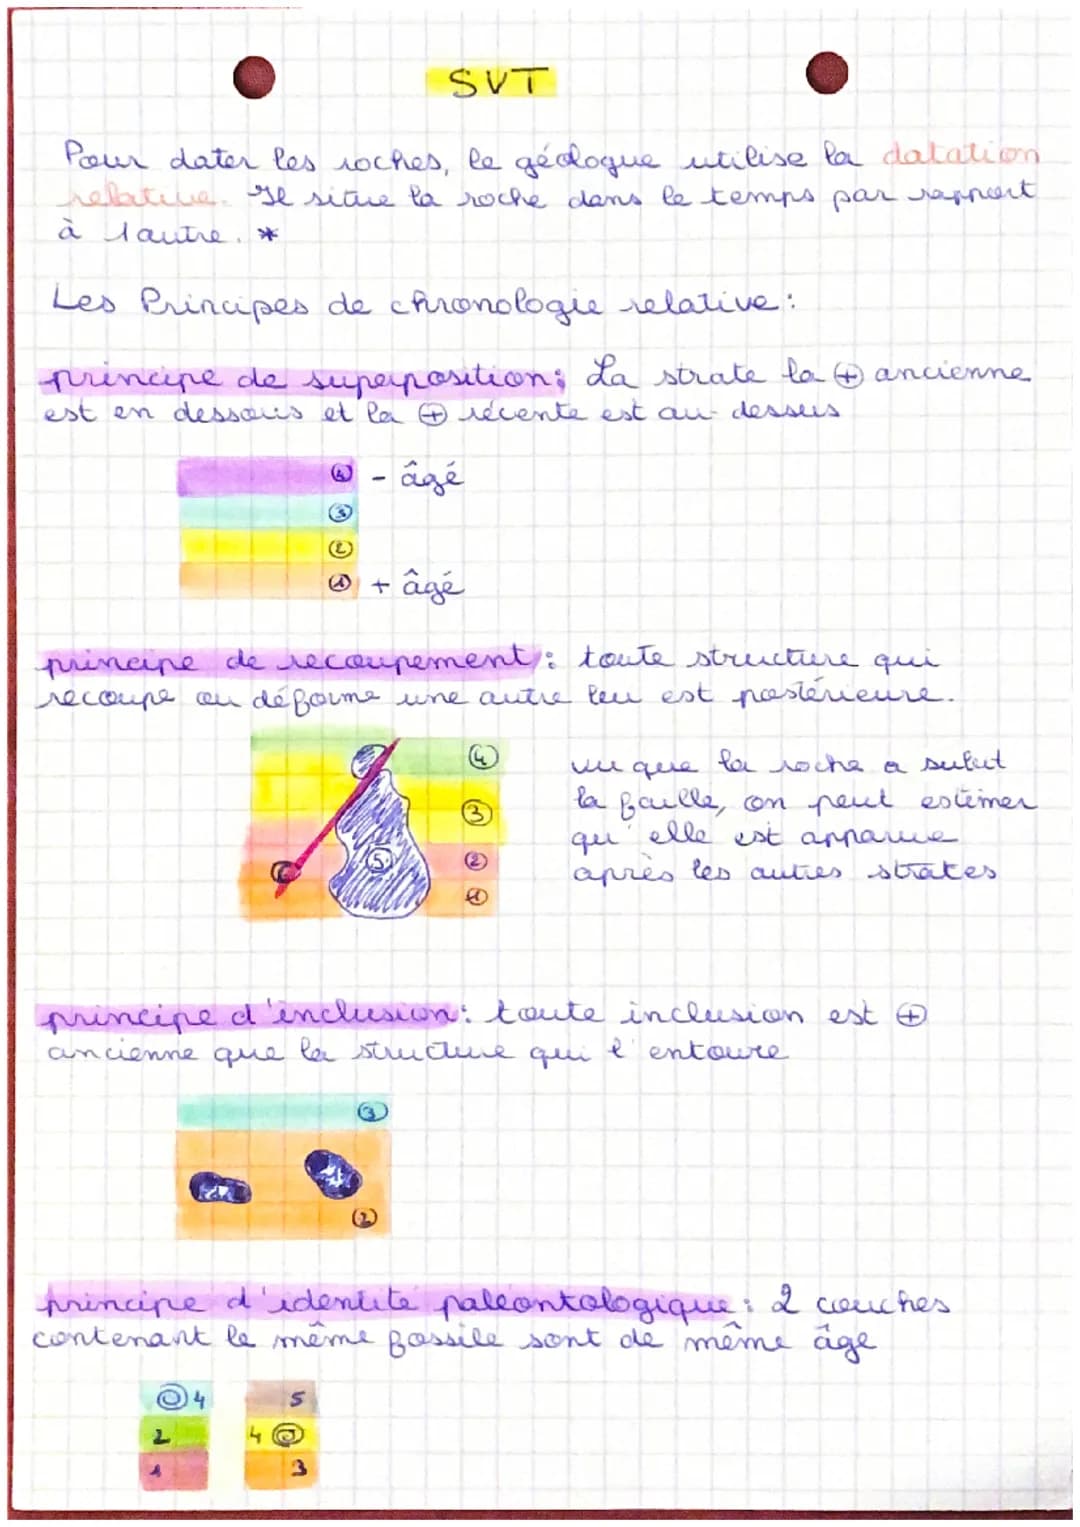 SVT
Pour dater les roches, le géologue utilise la datation
relative. Il situe la roche dans le temps par rapport
à l'autre. *
Les Principes de chronologie relative :
principe de superposition : La strate la ⊕ ancienne
est en dessous et la ⊕ récente est au-dessus
④ - âgé
③
②
① + âgé
principe de recoupement : toute structure qui
recoupe ou déforme une autre leu est postérieure.
④
③
②
①
⑤
vu que la roche a subit
la faille, on peut estimer
qu'elle est apparue
après les autres strates
principe d'inclusion : toute inclusion est ⊕
ancienne que la structure qui l'entoure
③
②
principe d'identité paléontologique : 2 couches
contenant le même fossile sont de même âge
4 5
2 4
1 3